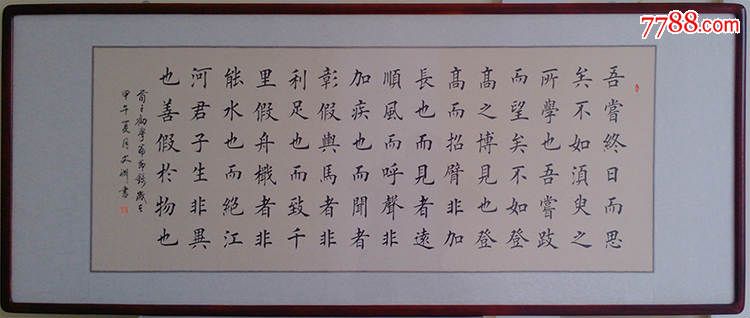 7788.com
吾嘗終日而思
矣不如湏臾之
所學也吾嘗跂
而望矣不如登
髙之博見也登
髙而招臂非加
長也而見者遠
順風而呼聲非
加疾也而聞者
彰假輿馬者非
利足也而致千
里假舟檝者非
能水也而絕江
河君子生非異
也善假於物也
荀子勸學篇節錄歲在
甲午夏月文書